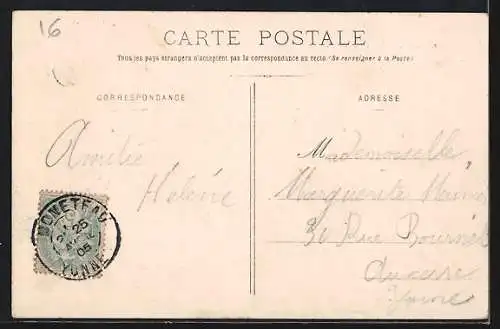 16
CARTE POSTALE
Tous les pays étrangers n'acceptent pas la correspondance au recto. (Se renseigner à la Poste)
CORRESPONDANCE
ADRESSE
Amitié
Hélène
Mademoiselle
Marguerite
30 Rue
Auxerre
Yonne
MONETEAU
25
05
YONNE